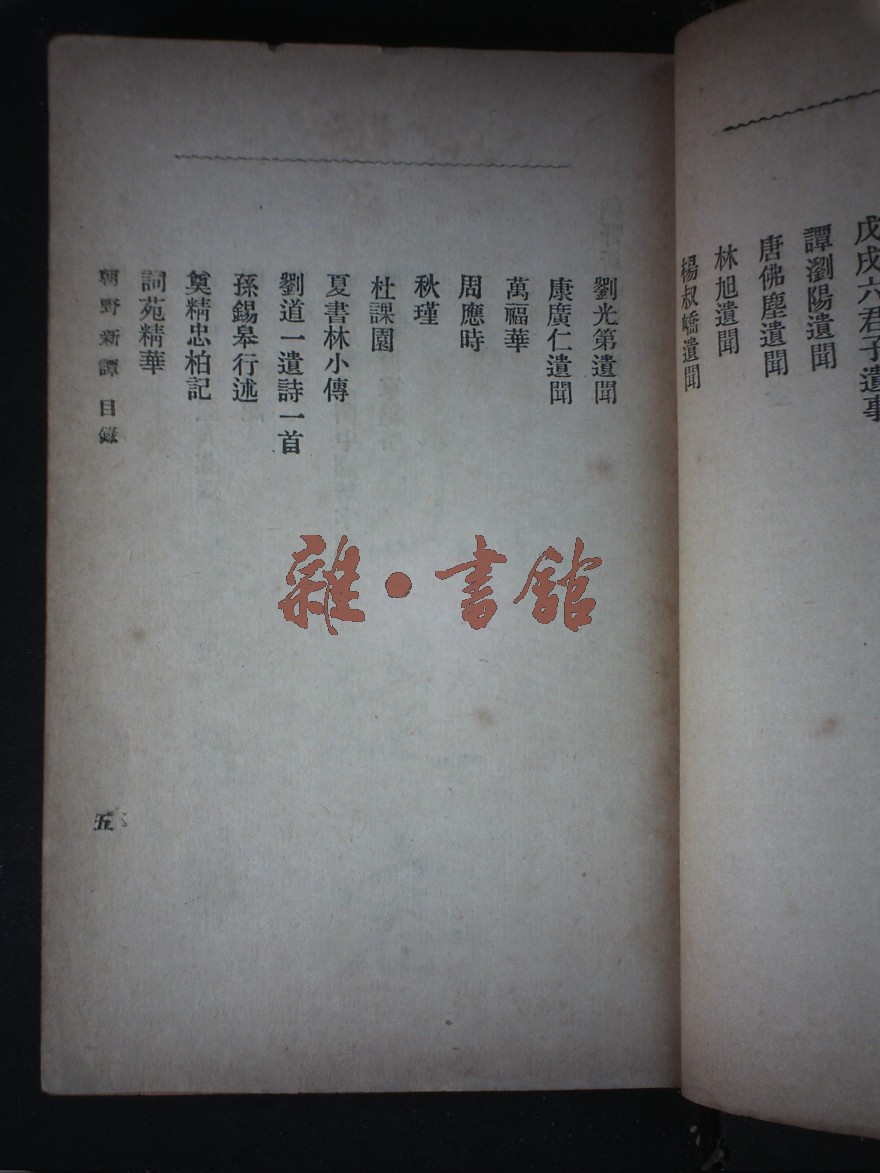 戊戌六君子遺事
譚瀏陽遺聞
唐佛塵遺聞
林旭遺聞
楊叔嶠遺聞
劉光第遺聞
康廣仁遺聞
萬福華
周應時
秋瑾
杜課園
夏書林小傳
劉道一遺詩一首
孫錫皋行述
奠精忠柏記
詞苑精華
朝野新譚 目錄
五
雜·書館